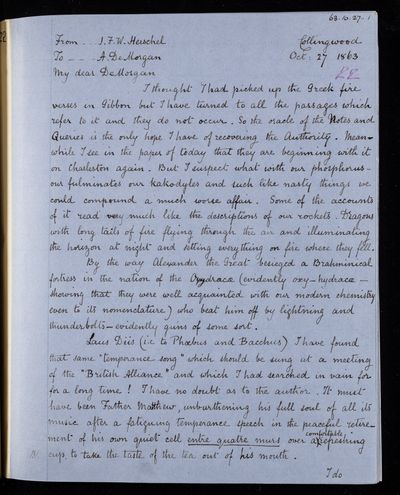 63.10.27.1
From . . . J.F.W. Herschel Collingwood
To - - - A. DeMorgan Oct: 27 1863
My dear DeMorgan
I thought I had picked up the Greek fire
verses in Gibbon but I have turned to all the passages which
refer to it and they do not occur. So the oracle of the Notes and
Queries is the only hope I have of recovering the Authority. Mean-
while I see in the papers of today that they are beginning with it
on Charleston again. But I suspect what with our phosphorus -
our fulminates our kakodyles and such like nasty things we
could compound a much worse affair. Some of the accounts
of it read very much like the descriptions of our rockets. Dragons
with long tails of fire flying through the air and illuminating
the horizon at night and setting everything on fire where they fell.
By the way Alexander the Great besieged a Brahminical
fortress in the nation of the Oxydracæ (evidently oxy-hydracæ -
shewing that they were well acquainted with our modern chemistry
even to its nomenclature) who beat him off by lightning and
thunderbolts - evidently guns of some sort.
Laus Diis (i.e to Phœbus and Bacchus) I have found
that same "temperance song" which should be sung at a meeting
of the "British Alliance" and which I had searched in vain for
for a long time! I have no doubt as to the author. It must
have been Father Matthew, unburthening his full soul of all its
music after a fatiguing temperance speech in the peaceful retire-
ment of his own quiet cell entre quatre murs over a comfortable refreshing
cup, to take the taste of the tea out of his mouth.
I do